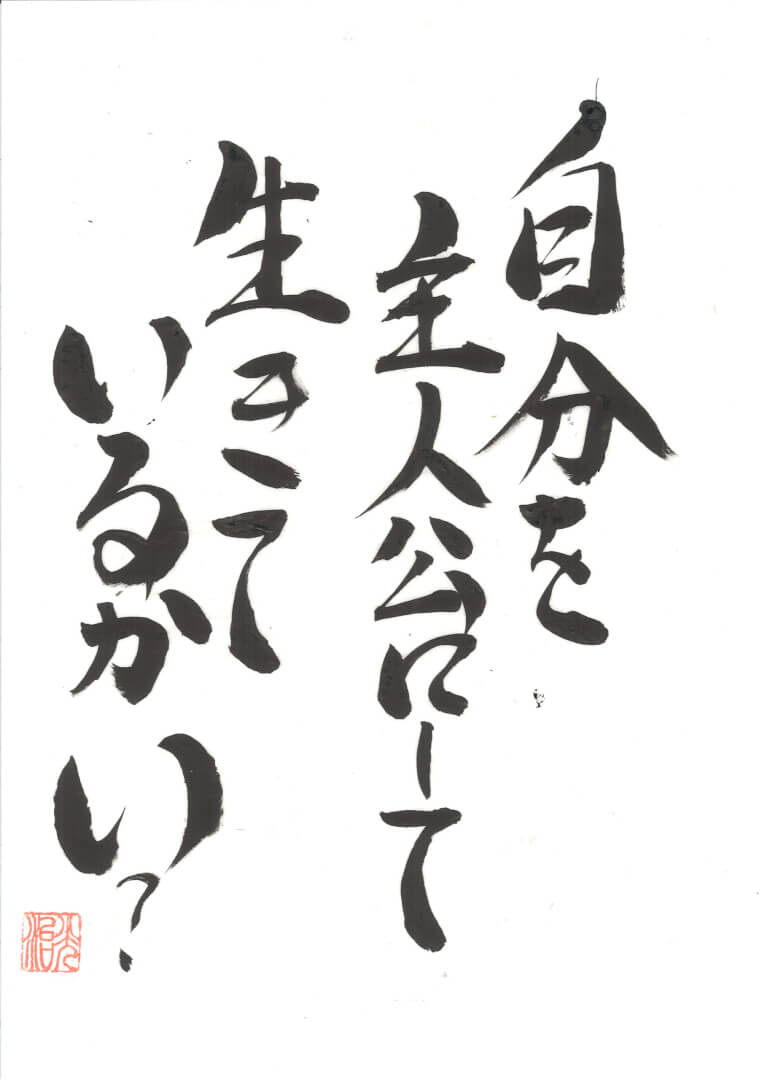 自分を
主人公にして
生きて
いるかい?